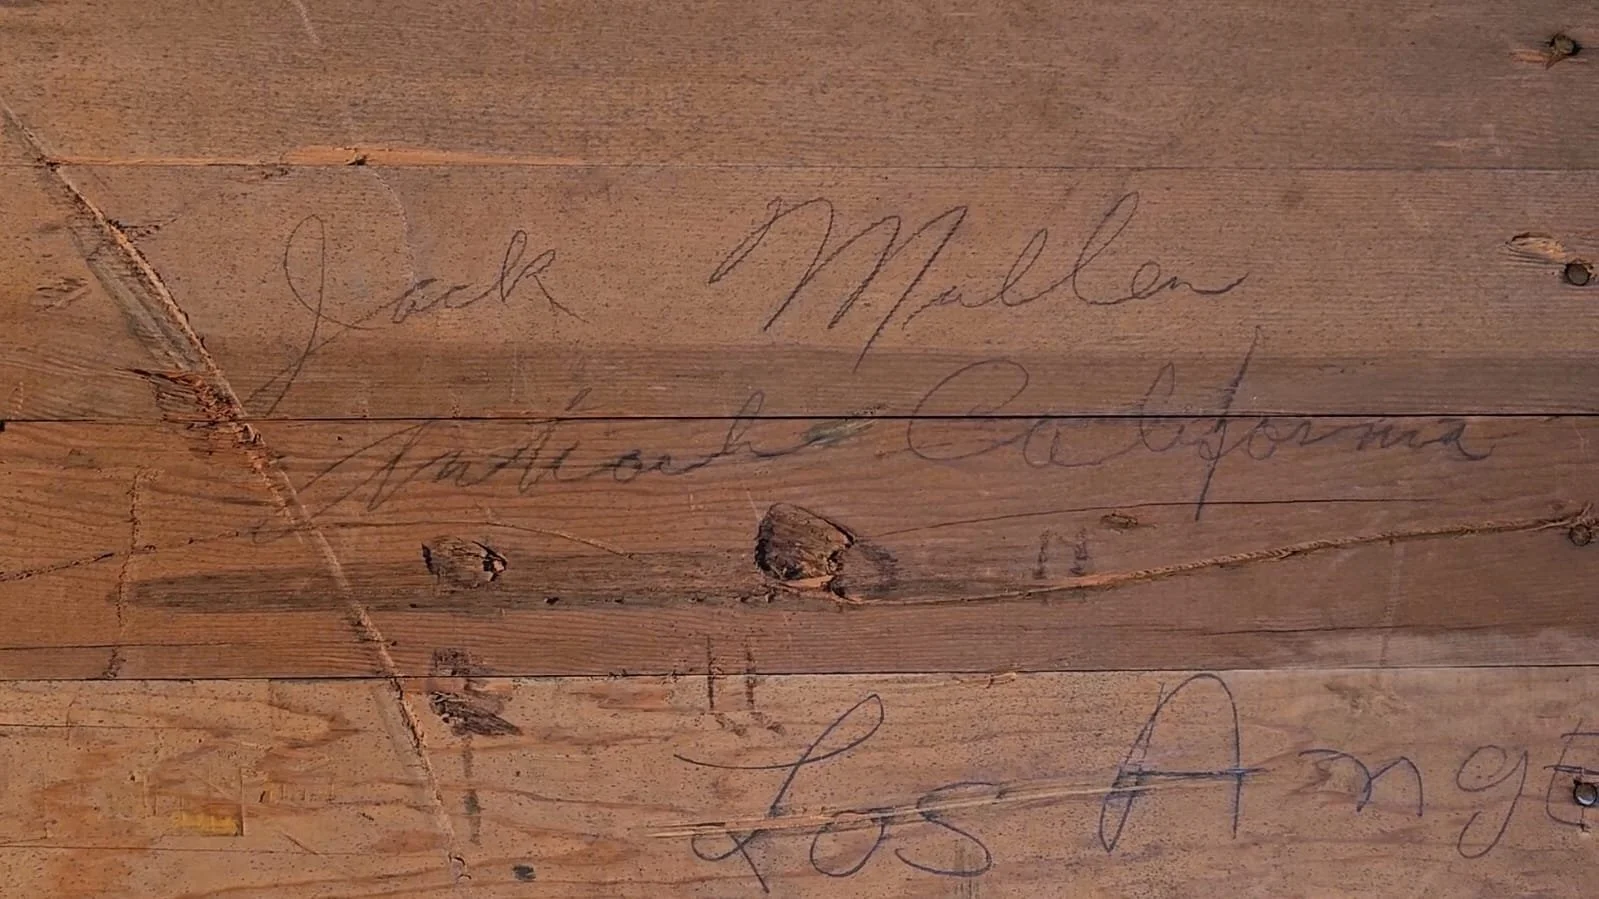 Jack Mullen
Antioch California
Los Ange